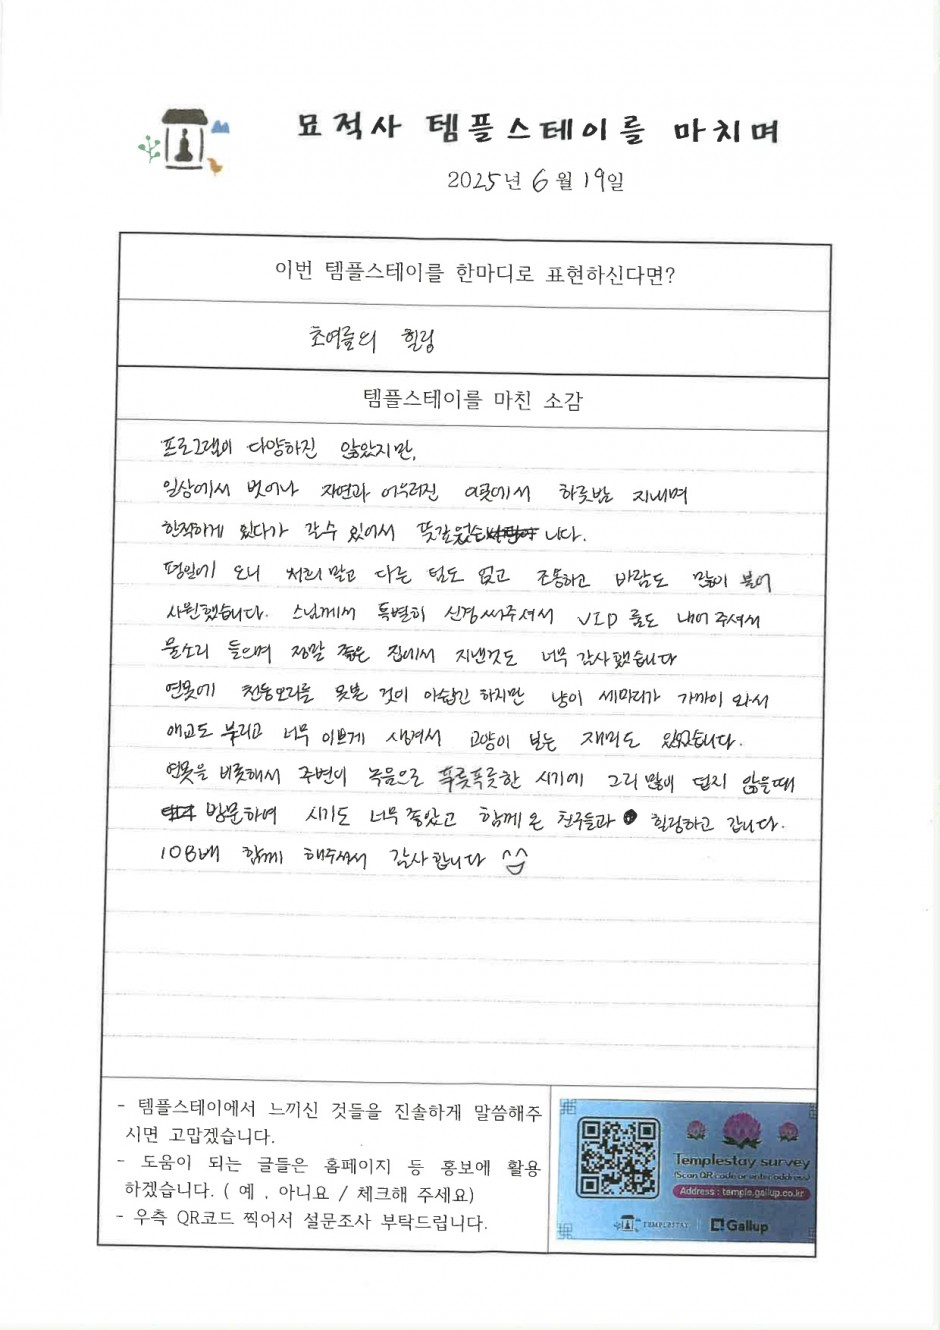 묘적사 템플스테이를 마치며
2025년 6월 19일
이번 템플스테이를 한마디로 표현하신다면?
초여름의 힐링
템플스테이를 마친 소감
프로그램이 다양하진 않았지만,
일상에서 벗어나 자연과 어우러진 이곳에서 하룻밤 지내며
한적하게 있다가 갈수 있어서 뜻깊었습니다.
평일에 오니 저희 말고 다른 팀도 없고 조용하고 바람도 많이 불어
시원했습니다. 스님께서 특별히 신경써주셔서 VIP 룸도 내어 주셔서
물소리 들으며 정말 좋은 집에서 지낸것도 너무 감사했습니다
연못에 천둥오리를 못본 것이 아쉽긴 하지만 냥이 세마리가 가까이 와서
애교도 부리고 너무 이쁘게 생겨서 고양이 보는 재미도 있었습니다.
연못을 비롯해서 주변이 녹음으로 푸릇푸릇한 시기에 그리 많이 덥지 않을때
방문하여 시기도 너무 좋았고 함께 온 친구들과 힐링하고 갑니다.
108배 함께 해주셔서 감사합니다 ^^
- 템플스테이에서 느끼신 것들을 진솔하게 말씀해주
시면 고맙겠습니다.
- 도움이 되는 글들은 홈페이지 등 홍보에 활용
하겠습니다. ( 예 , 아니요 / 체크해 주세요)
- 우측 QR코드 찍어서 설문조사 부탁드립니다.
Templestay survey
(Scan QR code or enter address)
Address : temple.gallup.co.kr
TEMPLESTAY Gallup